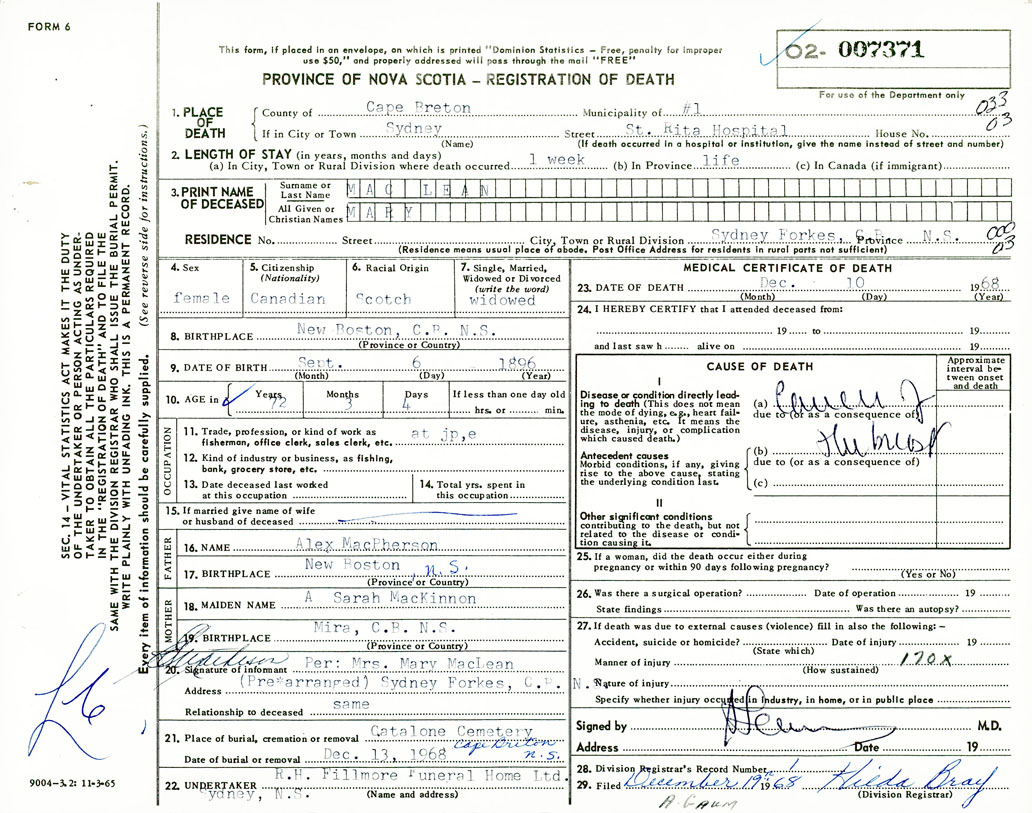 FORM 6
This form, if placed in an envelope, on which is printed "Dominion Statistics – Free, penalty for improper
use $50," and properly addressed will pass through the mail "FREE"
02- 007371
PROVINCE OF NOVA SCOTIA – REGISTRATION OF DEATH
For use of the Department only
1. PLACE OF DEATH
County of Cape Breton Municipality of #1
033
03
If in City or Town Sydney Street St. Rita Hospital House No.
(Name) (If death occurred in a hospital or institution, give the name instead of street and number)
2. LENGTH OF STAY (in years, months and days)
(a) In City, Town or Rural Division where death occurred 1 week (b) In Province life (c) In Canada (if immigrant)
3. PRINT NAME OF DECEASED
Surname or Last Name MAC LEAN
All Given or Christian Names MARY
RESIDENCE No. Street City, Town or Rural Division Sydney Forkes, C.B. Province N.S.
000
03
(Residence means usual place of abode. Post Office Address for residents in rural parts not sufficient)
4. Sex
female
5. Citizenship
(Nationality)
Canadian
6. Racial Origin
Scotch
7. Single, Married,
Widowed or Divorced
(write the word)
widowed
8. BIRTHPLACE New Boston, C.B. N.S.
(Province or Country)
9. DATE OF BIRTH Sept. 6 1896
(Month) (Day) (Year)
10. AGE in Years 72 Months 3 Days 4 If less than one day old
hrs. or min.
OCCUPATION
11. Trade, profession, or kind of work as at jp,e
fisherman, office clerk, sales clerk, etc.
12. Kind of industry or business, as fishing,
bank, grocery store, etc.
13. Date deceased last worked
at this occupation
14. Total yrs. spent in
this occupation
15. If married give name of wife
or husband of deceased
FATHER
16. NAME Alex MacPherson
17. BIRTHPLACE New Boston, N.S.
(Province or Country)
MOTHER
18. MAIDEN NAME A Sarah MacKinnon
19. BIRTHPLACE Mira, C.B. N.S.
(Province or Country)
20. Signature of informant Per: Mrs. Mary MacLean
Address (Pre*arranged) Sydney Forkes, C.B. N.S.
Relationship to deceased same
21. Place of burial, cremation or removal Catalone Cemetery
Cape Breton N.S.
Date of burial or removal Dec. 13, 1968
22. UNDERTAKER R.H. Fillmore Funeral Home Ltd.
Sydney, N.S. (Name and address)
MEDICAL CERTIFICATE OF DEATH
23. DATE OF DEATH Dec. 10 1968
(Month) (Day) (Year)
24. I HEREBY CERTIFY that I attended deceased from:
19 to 19
and last saw h alive on 19
CAUSE OF DEATH
Approximate interval between onset and death
I
Disease or condition directly leading to death (This does not mean the mode of dying, e.g., heart failure, asthenia, etc. It means the disease, injury, or complication which caused death.)
(a) Cancer of
due to (or as a consequence of)
Antecedent causes
Morbid conditions, if any, giving rise to the above cause, stating the underlying condition last.
(b) the breast
due to (or as a consequence of)
(c)
II
Other significant conditions
contributing to the death, but not related to the disease or condition causing it.
25. If a woman, did the death occur either during
pregnancy or within 90 days following pregnancy?
(Yes or No)
26. Was there a surgical operation? Date of operation 19
State findings Was there an autopsy?
27. If death was due to external causes (violence) fill in also the following: –
Accident, suicide or homicide? Date of injury 19
(State which)
Manner of injury 170X
(How sustained)
Nature of injury
Specify whether injury occurred in industry, in home, or in public place
Signed by M.D.
Address Date 19
28. Division Registrar's Record Number 1
29. Filed December 19th 1968 Hilda Bray
(Division Registrar)
A. GAUM
SEC. 14 – VITAL STATISTICS ACT MAKES IT THE DUTY
OF THE UNDERTAKER OR PERSON ACTING AS UNDER-
TAKER TO OBTAIN ALL THE PARTICULARS REQUIRED
IN THE "REGISTRATION OF DEATH" AND TO FILE THE
SAME WITH THE DIVISION REGISTRAR WHO SHALL ISSUE THE BURIAL PERMIT.
WRITE PLAINLY WITH UNFADING INK. THIS IS A PERMANENT RECORD.
Every item of information should be carefully supplied. (See reverse side for instructions.)
9004–3.2: 11-3-65